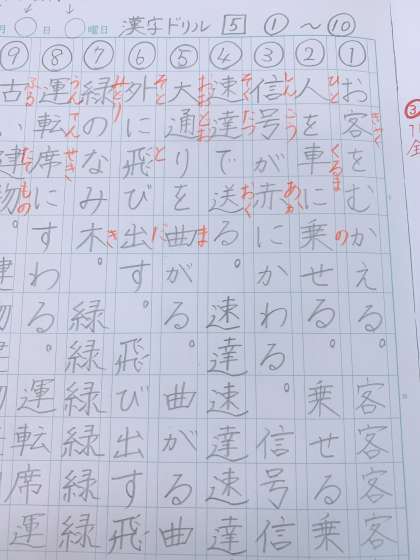 漢字ドリル 5 ① ～ ⑩
月 日 曜日
① お客をむかえる。 客客客客
きゃく
② 人を車に乗せる。 乗せる乗
ひと くるま の
③ 信号が赤にかわる。 信号信
しん ごう あか
④ 速達で送る。 速達速達速達
そく たつ おく
⑤ 大通りを曲がる。 曲がる曲
おお どお ま
⑥ 外に飛び出す。 飛び出す飛
そと と だ
⑦ 緑のなみ木。 緑緑緑緑緑緑
みどり き
⑧ 運転席にすわる。 運転席運
うん てん せき
⑨ 古い建物。
ふる たて もの